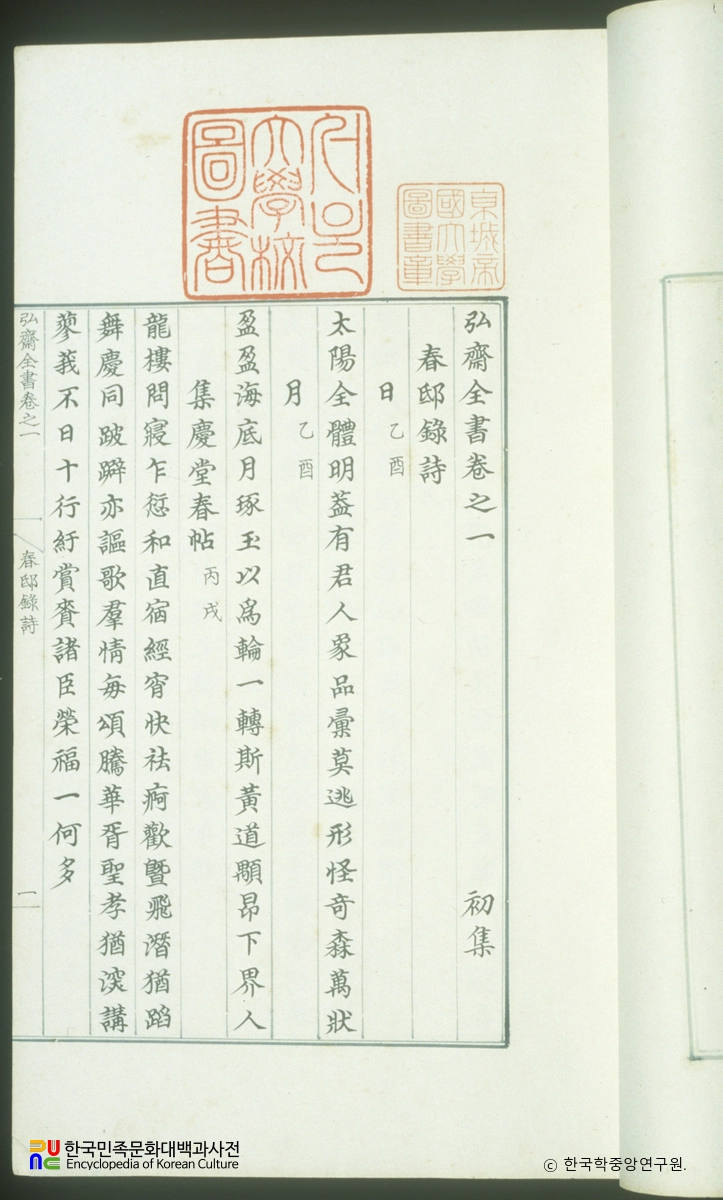 弘齋全書卷之一 初集
春邸錄詩
日 乙酉
太陽全體明蓋有君人象品彙莫逃形怪奇森萬狀
月 乙酉
盈盈海底月琢玉以爲輪一轉斯黃道顒昂下界人
集慶堂春帖 丙戌
龍樓問寢乍愆和直宿經宵快祛痾歡曁飛潛猶蹈
舞慶同跛躃亦謳歌羣情每頌騰華胥聖孝猶深講
蓼莪不日十行紆賞賚諸臣榮福一何多
弘齋全書卷之一 春邸錄詩 一
東城帝
國大學
圖書章
大學校
圖書
한국민족문화대백과사전
Encyclopedia of Korean Culture
ⓒ 한국학중앙연구원.